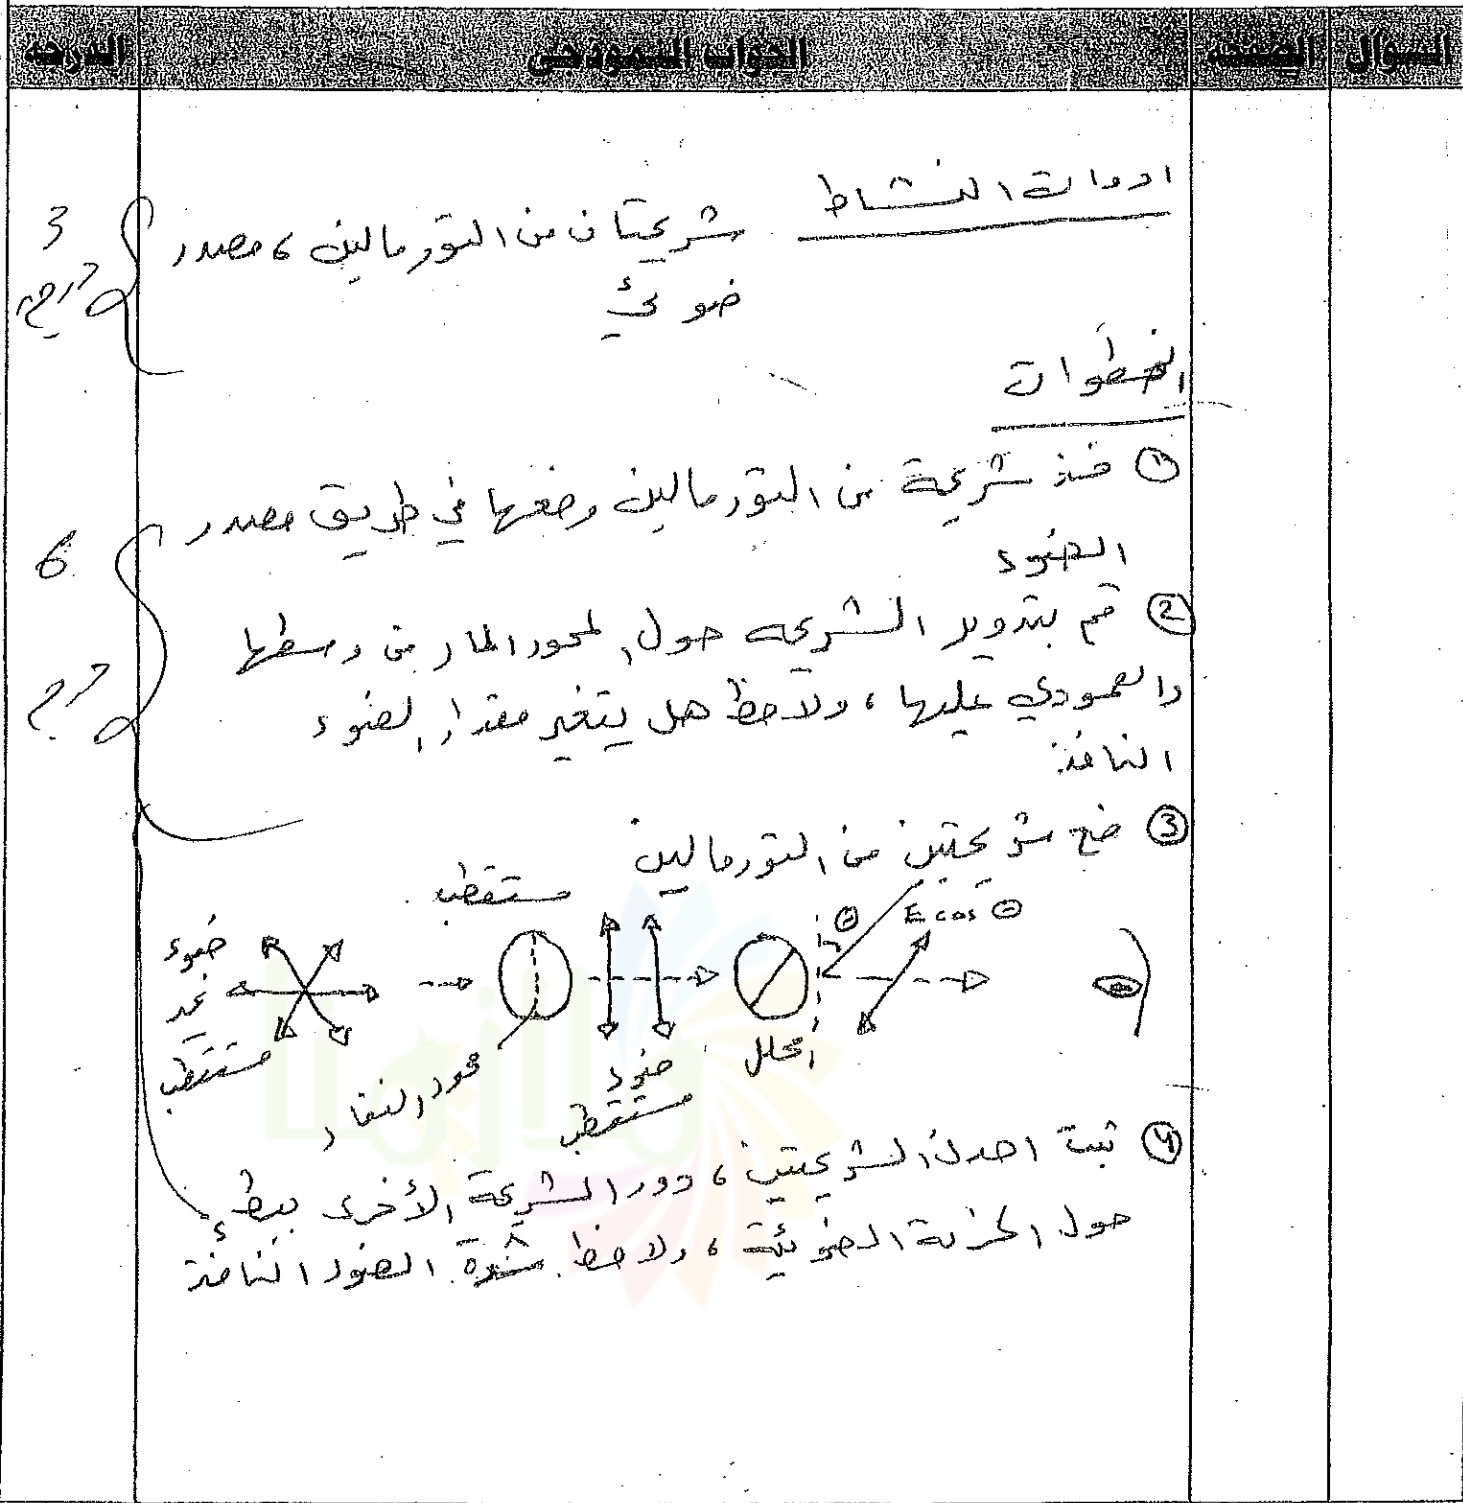 السؤال الصفحة الجواب النموذجي الدرجة
ادوات النشاط شريحتان من التورمالين ، مصدر
ضوئي
3
درجة
الخطوات
① خذ شريحة من التورمالين وضعها في طريق مصدر
الضوء
② قم بتدوير الشريحة حول المحور المار من وسطها
والعمودي عليها ، ولاحظ هل يتغير مقدار الضوء
النافذ
6
درجة
③ ضع شريحتين من التورمالين
مستقطب
θ E cos θ
ضوء
غير
مستقطب
محور النفاذ
ضوء
مستقطب
المحلل
④ ثبت احدى الشريحتين ، دور الشريحة الأخرى ببطء
حول الحزمة الضوئية ، ولاحظ شدة الضوء النافذ